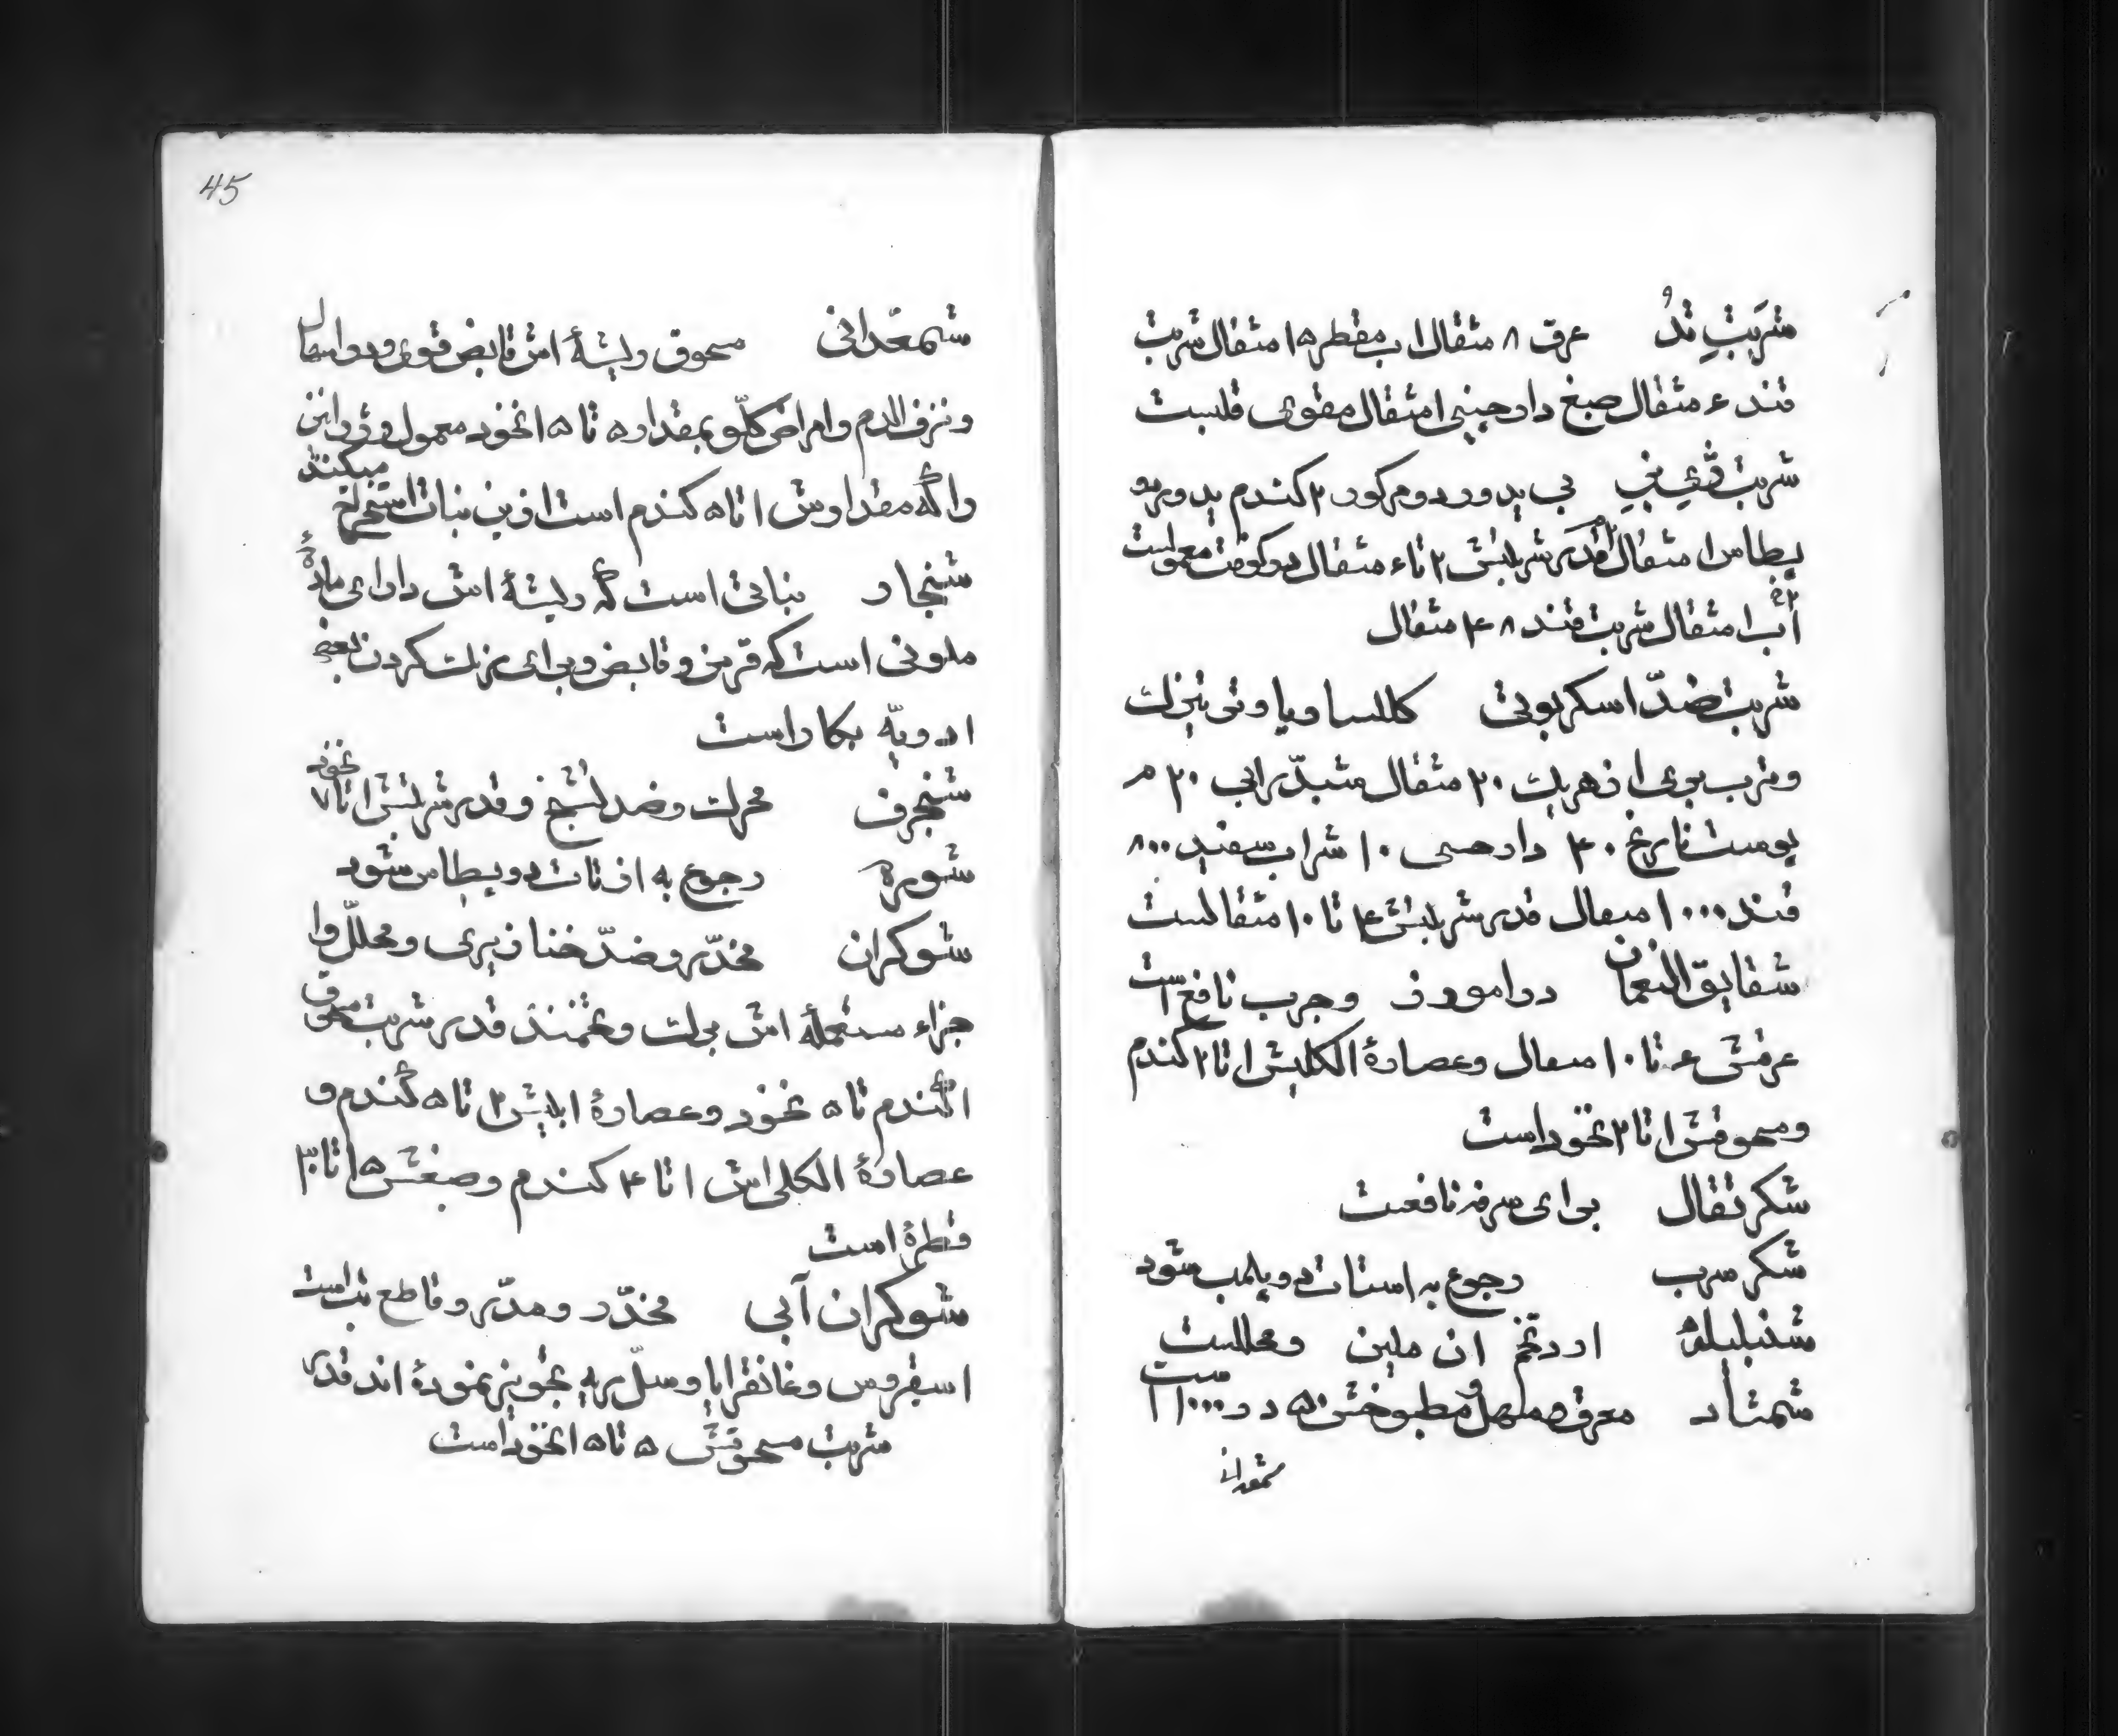 شربتِ تدُ عرق ۸ مثقال اب مقطر ۱۵ مثقال شربت
قند ۶ مثقال صبغ دارچینی ۱ مثقال مقوی قلبست
شربت بی یدورد و مرکور ۲ کندم یدورد و
پطاس ۱ مثقال قدر شربتش ۲ تا ۶ مثقال در کوفت معمولست
آب ۲۵ ۱ مثقال شربت قند ۴۸ مثقال
شربت ضدّ اسکربوتی
و ترب بری از هریک ۳۰ مثقال ۳۰ م
پوست نارنج ۴۰ دارچینی ۱۰ شراب سفید ۸۰۰
قند ۱۰۰۰ مثقال قدر شربتش ۴ تا ۱۰ مثقالست
شقایق النعمان در اموروز و جرب نافع است
عرقش ۶ تا ۱۰ مثقال و عصارهٔ الکلیش ۱ تا ۲ کندم
و مسحوقش ۱ تا ۲ نخود است
شکر تقال برای سرفه نافعست
شکر سرب رجوع به استات دو پلمب شود
شنبلیله ارد تخم ان ملین و محللست
شمشاد معرق و مسهل و مطبوخش ۵۰ در ۱۰۰۰ ا است
شمعدانی
45
شمعدانی مسحوق ریشهٔ اش قابض قوی و در اسهال
و نزف الدم و امراض کلّو بمقدار ۵ تا ۱۵ نخود معمول و
را که مقدارش ۱ تا ۵ کندم است ازین نبات استخراج میکنند
شنجار نباتی است که ریشهٔ اش دارای مادهٔ
ملونی است که قرمز و قابض و برای رنک کردن بعضی
ادویّه بکار است
شنجرف محرک و ضد تشنج و قدر شربتش ۱ تا ۷ نخود
شوره رجوع به ازتات دو پطاس شود
شوکران مخدّر و ضدّ خنازیری و محلّل و ا
جزاء مستعملهٔ اش برک و تخمند قدر شربت مسحوق
۱ کندم تا ۵ نخود و عصارهٔ ابلیش ۲ تا ۵ کندم و
عصارهٔ الکلی اش ۱ تا ۴ کندم و صبغش ۱۵ تا ۳۰
قطره است
شوکران آبی مخدّر و مدّر و قاطع تب است
اسقروس و غانقرایا و سلّ ریه تجویز نمودهٔ اند قدر
شربت مسحوقش ۵ تا ۱۵ نخود است